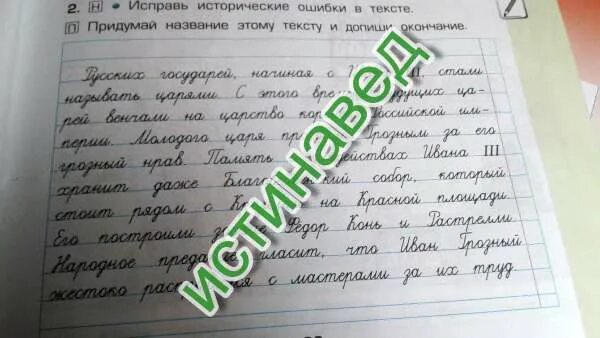 2. Н • Исправь исторические ошибки в тексте.
П Придумай название этому тексту и допиши окончание.
Русских государей, начиная с III, стали
называть царями. С этого будущих ца-
рей венчали на царство Российской им-
перии. Молодого царя Грозным за его
грозный нрав. Память Ивана III
хранит даже собор, который
стоит рядом с на Красной площади.
Его построили Фёдор Конь и Растрелли
Народное гласит, что Иван Грозный
жестоко с мастерами за их труд.
ИСТИНАВЕД